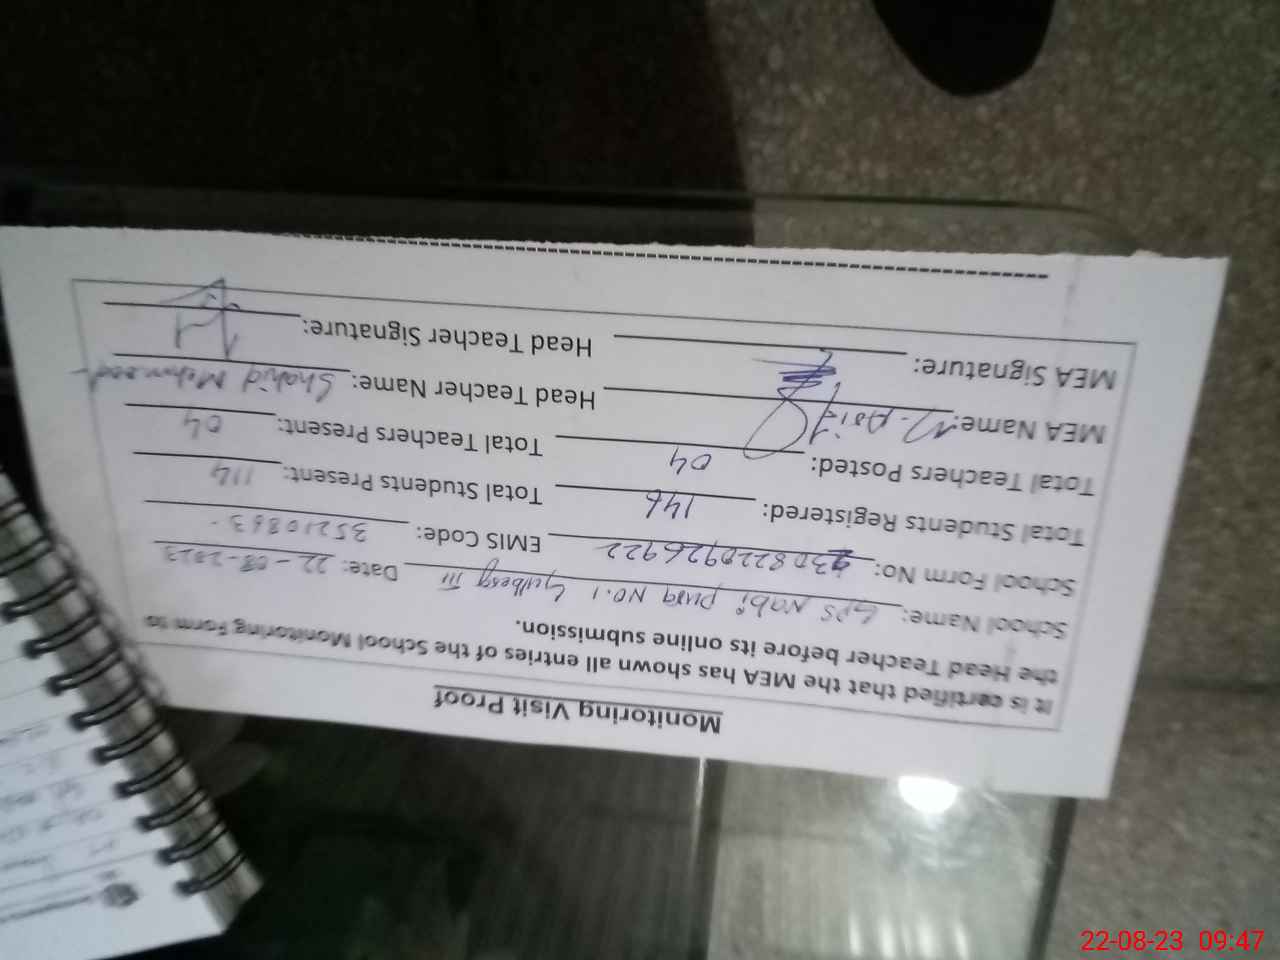 Monitoring Visit Proof
It is certified that the MEA has shown all entries of the School Monitoring Form to
the Head Teacher before its online submission.
School Name: GPS Nabi pura NO.1 Gulberg III Date: 22-08-2023
School Form No: 2308220926922 EMIS Code: 35210863
Total Students Registered: 146 Total Students Present: 114
Total Teachers Posted: 04 Total Teachers Present: 04
MEA Name: Head Teacher Name: Shahid Mehmood
MEA Signature: Head Teacher Signature:
22-08-23 09:47